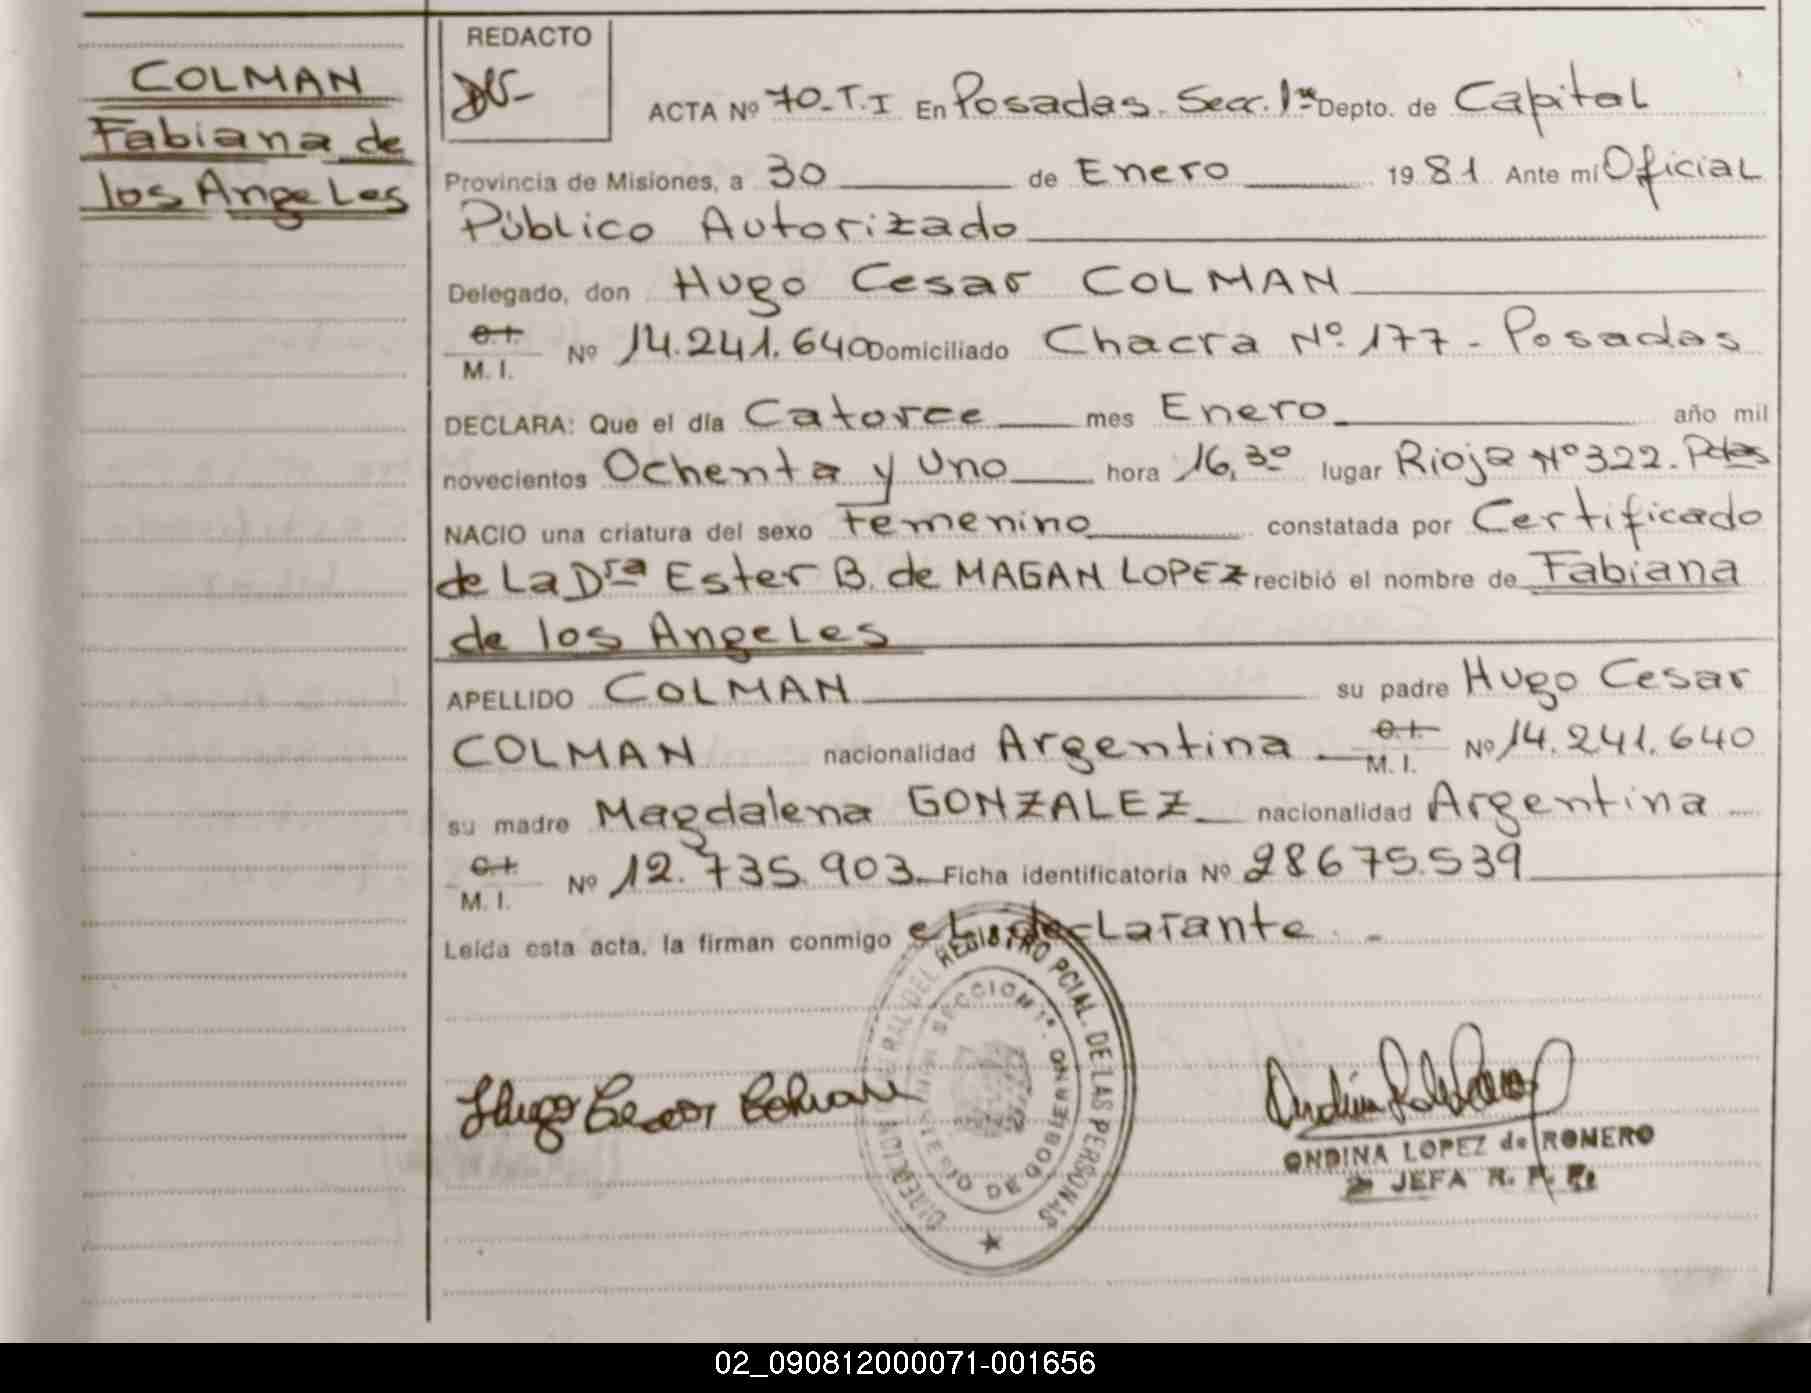 COLMAN
Fabiana de
los Angeles
REDACTO
ACTA Nº 70-T.I En Posadas. Secc. 1ra Depto. de Capital
Provincia de Misiones, a 30 de Enero 1981 Ante mi Oficial
Público Autorizado
Delegado, don Hugo Cesar COLMAN
C.I.
M. I. Nº 14.241.640 Domiciliado Chacra Nº 177 - Posadas
DECLARA: Que el día Catorce mes Enero año mil
novecientos Ochenta y Uno hora 16,30 lugar Rioja Nº 322. Pdas
NACIO una criatura del sexo Femenino constatada por Certificado
de La Dra Ester B. de MAGAN LOPEZ recibió el nombre de Fabiana
de los Angeles
APELLIDO COLMAN su padre Hugo Cesar
COLMAN nacionalidad Argentina C.I. M. I. Nº 14.241.640
su madre Magdalena GONZALEZ nacionalidad Argentina
C.I.
M. I. Nº 12.735.903 Ficha identificatoria Nº 28675.539
Leída esta acta, la firman conmigo el declarante. -
DIRECCION GENERAL DEL REGISTRO PCIAL. DE LAS PERSONAS
SECCION 1ª
MINISTERIO DE GOBIERNO
Hugo Cesar Colman
ONDINA LOPEZ de ROMERO
JEFA R. P. P.
02_090812000071-001656